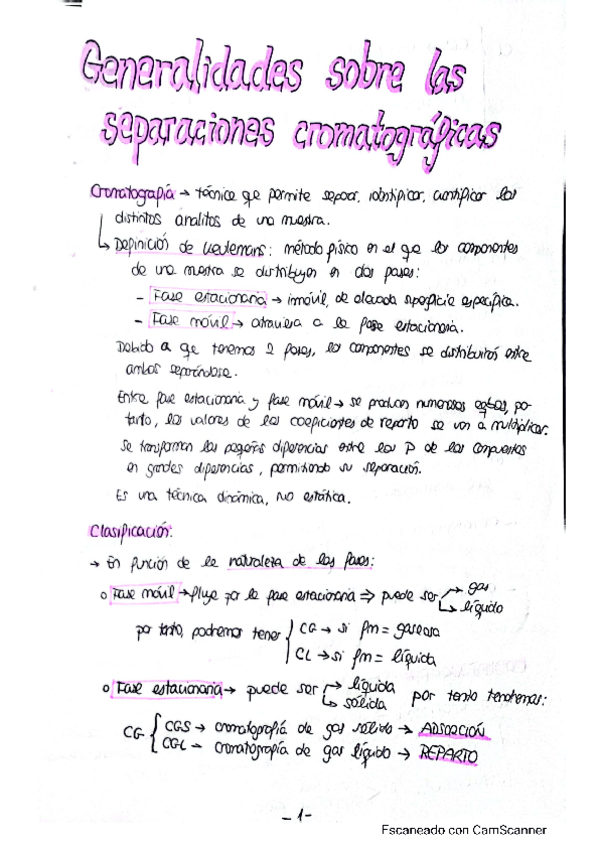 Generalidades sobre las
separaciones cromatográficas
Cromatografía → técnica que permite separar, identificar, cuantificar los
distintos analitos de una muestra.
↳ Definición de Keulemans: método físico en el que los componentes
de una muestra se distribuyen en dos fases:
- Fase estacionaria → inmóvil, de elevada superficie específica.
- Fase móvil → atraviesa a la fase estacionaria.
Debido a que tenemos 2 fases, los componentes se distribuirán entre
ambas separándose.
Entre fase estacionaria y fase móvil → se producen numerosos por
tanto, los valores de los coeficientes de reparto se van a multiplicar.
Se transforman las pequeñas diferencias entre los P de los compuestos
en grandes diferencias, permitiendo su separación.
Es una técnica dinámica, NO estática.
Clasificación:
→ En función de la naturaleza de las fases:
o Fase móvil → fluye por la fase estacionaria ⇒ puede ser → gas
↳ líquido
por tanto, podremos tener { CG → si fm = gaseosa
CL → si fm = líquida
o Fase estacionaria → puede ser → líquida
↳ sólida
por tanto tendremos:
CG { CGS → cromatografía de gas sólido → ADSORCIÓN
CGL → cromatografía de gas líquido → REPARTO
-1-
Escaneado con CamScanner